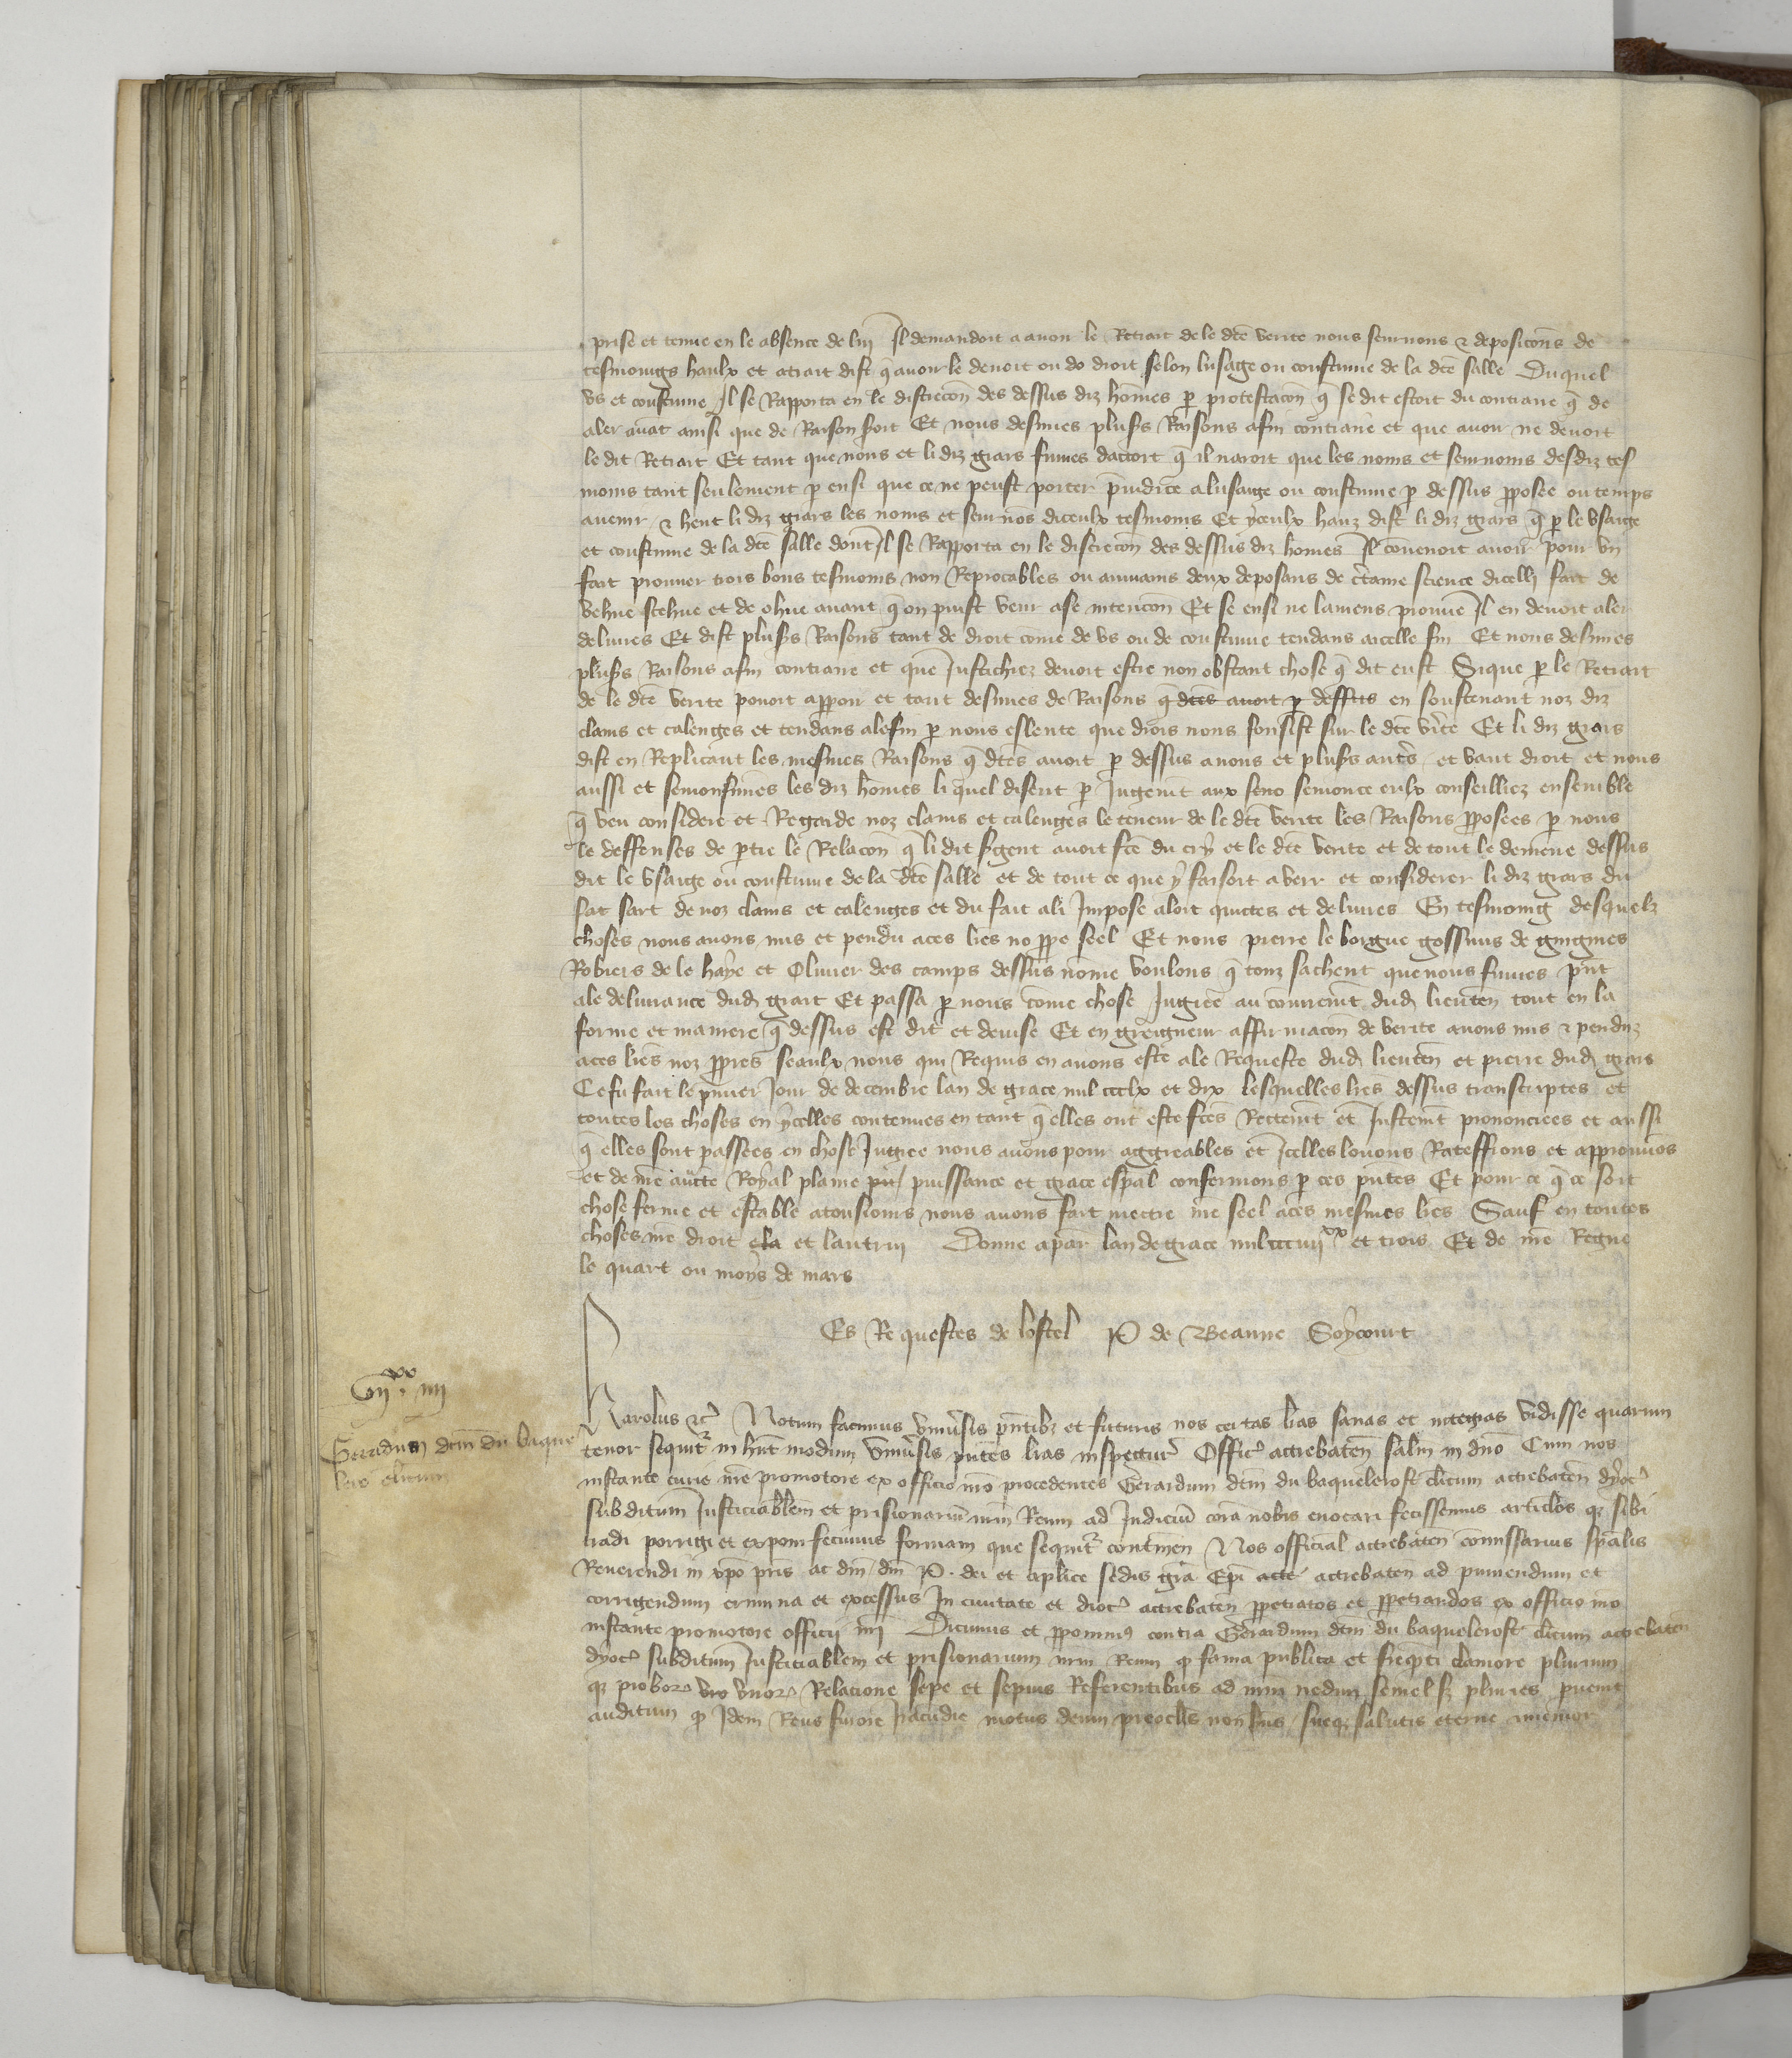 prise et tenue en le absence de luy Il demandoit a avoir le Retrait de le dce verite nous seurnons et deposicons de
tesmoings haulx et atrait dist q̄ avoir le devoit ou de droit selon lusage ou coustume de la dce salle Duquel
us et coustume Il se Rapporta en le discrecon des dessus diz hom̄es p protestacon q̄ se dit estoit du contraire q̄ de
aler avāt ainsi que de Raison soit Et nous desimes plusrs Raisons afin contraire et que avoir ne devoit
le dit Retrait Et tant que nous et li diz grars fumes dacort q̄ il naroit que les noms et seurnoms desdiz tes
moins tant seulement p ensi que ce ne peust porter p̄iudice a lusaige ou coustume p dessus pposee ou temps
avenir et heut li diz grars les noms et seurnōs diceulx tesmoins Et yceulx hauz dist li diz grars q̄ p le Usaige
et coustume de la dce salle dont Il se Rapporta en le discrecon des dessus diz homes Il cōvenoit avoir pour un
fait prouver trois bons tesmoins non Reprocables ou aumains deux deposans de c̄taine science dicelli fait de
vehue scehue et de ohue avant q̄ on puist venir a se intencon Et se ensi ne lamens prouvē Il en devoit aler
delivres Et dist plusrs Raisons tant de droit come de us ou de coustume tendans a icelle fin Et nous desimes
plusrs Raisons afin contraire et que Justichiez devoit estre non obstant chose q̄ dit eust Sique p le Retrait
de le dce verite povoit apparoir et tant desimes de Raisons q̄ dces avoit p dessus en soustenant noz diz
clams et calenges et tendans a le fin p nous eslente que drois nous fonsist sur le dce v̄ite Et li diz grars
dist en Replicant les mesmes Raisons q̄ dces avoit p dessus a nous et plusrs autres et vaut droit et nous
aussi et semonsimes les diz homes li quel disent p Jugemt aux seno semonce eulx conseilliez ensemble
q̄ veu considere et Regarde noz clams et calenges le teneur de le dce verite les Raisons pposees p nous
le deffenses de ptie le Relacon q̄ li dit sgent avoit fce du cry et le dce verite et de tout le demene dessus
dit le Usaige ou coustume de la dce salle et de tout ce que y faisoit a veir et considerer li diz grars du
fait sart de noz clams et calenges et du fait a li Impose aloit quittes et delivres En tesmoing desquelz
choses nous avons mis et pendu a ces lres no ppe seel Et nous pierre le borgue gossuins de guignies
Robiers de le haye et Olivier des camps dessus nōme voulons q̄ touz sachent que nous fumes p̄nt
a le delivrance dud grart Et passa p nous cōme chose Jugiee au convenit dud lieuten tout en la
forme et maniere q̄ dessus est dit et devise Et en greigneur affirmacon de verite avons mis et penduz
a ces lres noz ppres seaulx nous qui Requis en avons este a le Requeste dud lieuten et pierre dud grars
Ce fu fait le p̄mier Jour de decembre lan de grace mil ccclx et dix lesquelles lres dessus transcriptes et
toutes les choses en ycelles contenues en tant q̄ elles ont este fces Rectemt et Justemt prononciees et aussi
q̄ elles sont passees en chose Jugiee nous avons pour aggreables et Icelles louons Rateffions et approuvōs
et de nr̄e aucte Royal plaine puissance et grace esp̄al confermons p ces p̄ntes Et pour ce q̄ ce soit
chose ferme et estable a tousiours nous avons fait mectre nr̄e seel a ces mesmes lres Sauf en toutes
choses nr̄e droit et lautruy Donne a par lan de grace mil ccciiii xx et trois Et de nr̄e Regne
le quart ou moys de mars
Es Requestes de lostel P de Beaune Soycourt
vii xx iiii
Gerardus dcm du baque
lero clicum
Karolus etc Notum facimus Univ̄sis p̄ntibz et futuris nos certas lras sanas et integras vidisse quarum
tenor sequit̄ in hūc modum Univ̄sis p̄ntes lras inspectur Offic Attrebaten salm in dno Cum nos
instante curie nr̄e promotore ex officio nr̄o procedentes Gerardum dcm du baquelerost clicum attrebaten dyoc
subditum Justiciablem et prisionarium nr̄m Reum ad Judiciū corā nobis evocari fecissemus articlos qz sibi
tradi porrigi et exponi fecimus formam que sequit̄ continen Nos official attrebaten cōmissarius sp̄alis
Reverendi in xpo pris ac dni dni P. dei et aplice sedis gra Epi attrebaten ad puniendum et
corrigendum crimina et excessus In civitate et dioc attrebaten ppetratos et ppetrandos ex officio nr̄o
instante promotore officii nr̄i Dicimus et pponimus contra Gerardum dcm du baqueleroste clicum attrebaten
dyoc subditum Justiciablem et prisionarium nr̄m Reum q fama publica et freq̄nti clamore plurium
qz probor viror Relacione sepe et sepius Referentibus ad nr̄m nedum semel sz pluries pvenit
auditum q Idem Reus furore Iracudie motus deum pre oclis non hn̄s sueqz salutis eterne Immemor